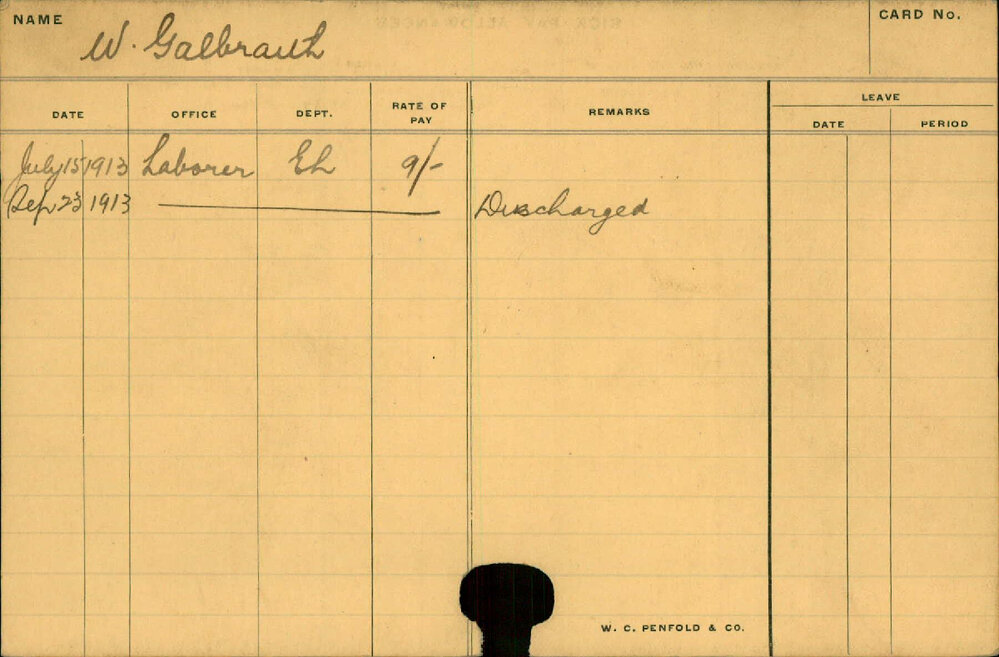 NAME
W. Galbraith
CARD No.
DATE OFFICE DEPT. RATE OF PAY REMARKS LEAVE
DATE PERIOD
July 15 1913 Laborer EL 9/-
Sep 23 1913 Discharged
W. C. PENFOLD & CO.